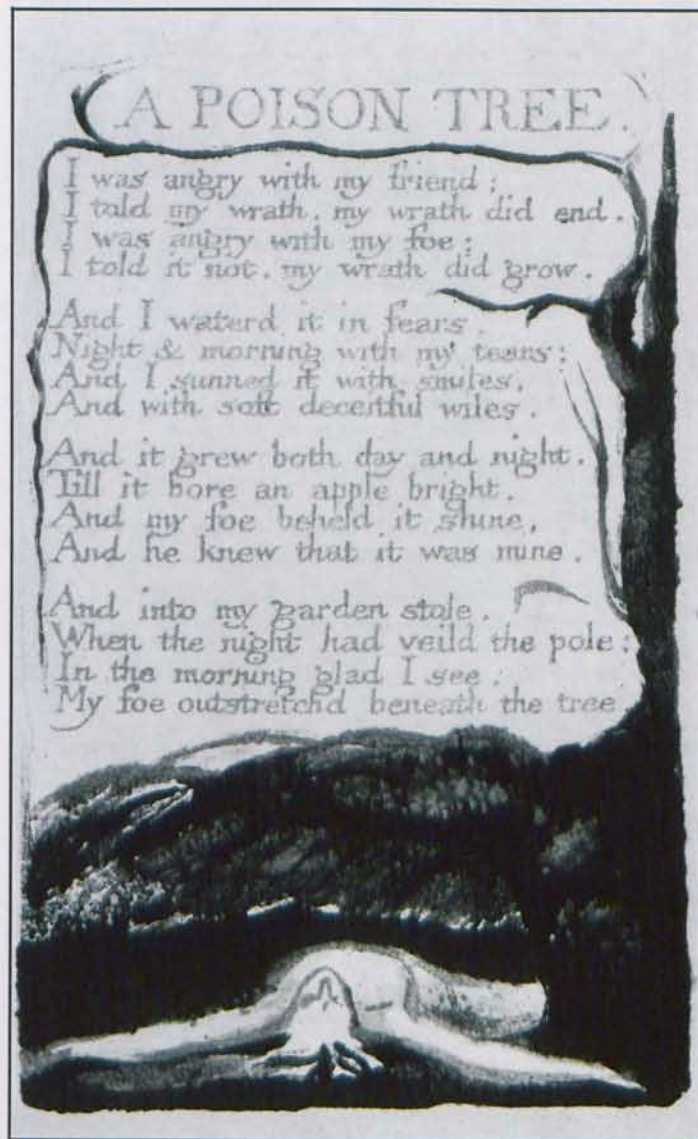 A POISON TREE.
I was angry with my friend:
I told my wrath, my wrath did end.
I was angry with my foe:
I told it not, my wrath did grow.
And I waterd it in fears,
Night & morning with my tears:
And I sunned it with smiles,
And with soft deceitful wiles.
And it grew both day and night.
Till it bore an apple bright.
And my foe beheld it shine,
And he knew that it was mine.
And into my garden stole.
When the night had veild the pole;
In the morning glad I see;
My foe outstretchd beneath the tree